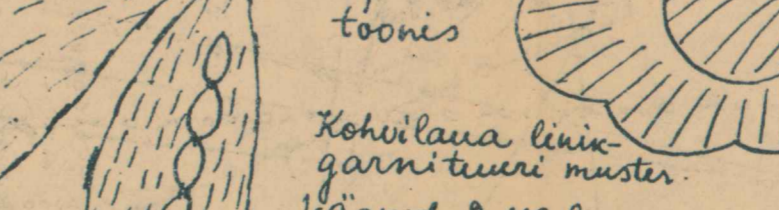 toonis
Kohvilaua linik-
garnituuri muster.